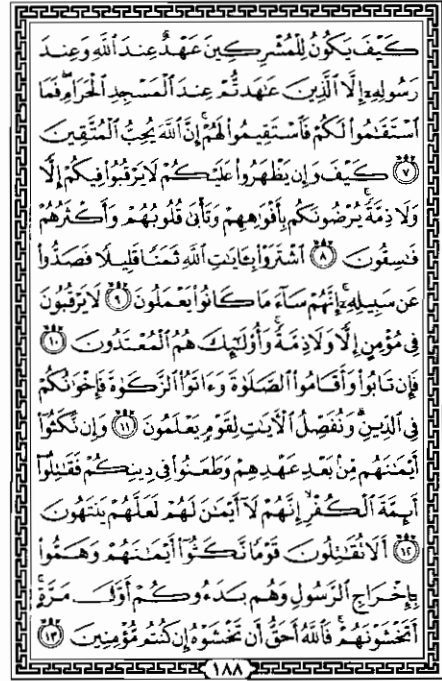 كَيْفَ يَكُونُ لِلْمُشْرِكِينَ عَهْدٌ عِندَ ٱللَّهِ وَعِندَ
رَسُولِهِۦٓ إِلَّا ٱلَّذِينَ عَٰهَدتُّمْ عِندَ ٱلْمَسْجِدِ ٱلْحَرَامِ ۖ فَمَا
ٱسْتَقَٰمُوا۟ لَكُمْ فَٱسْتَقِيمُوا۟ لَهُمْ ۚ إِنَّ ٱللَّهَ يُحِبُّ ٱلْمُتَّقِينَ
٧ كَيْفَ وَإِن يَظْهَرُوا۟ عَلَيْكُمْ لَا يَرْقُبُوا۟ فِيكُمْ إِلًّا
وَلَا ذِمَّةً ۚ يُرْضُونَكُم بِأَفْوَٰهِهِمْ وَتَأْبَىٰ قُلُوبُهُمْ وَأَكْثَرُهُمْ
فَٰسِقُونَ ٨ ٱشْتَرَوْا۟ بِـَٔايَٰتِ ٱللَّهِ ثَمَنًا قَلِيلًا فَصَدُّوا۟
عَن سَبِيلِهِۦٓ ۚ إِنَّهُمْ سَآءَ مَا كَانُوا۟ يَعْمَلُونَ ٩ لَا يَرْقُبُونَ
فِى مُؤْمِنٍ إِلًّا وَلَا ذِمَّةً ۚ وَأُو۟لَٰٓئِكَ هُمُ ٱلْمُعْتَدُونَ ١٠
فَإِن تَابُوا۟ وَأَقَامُوا۟ ٱلصَّلَوٰةَ وَءَاتَوُا۟ ٱلزَّكَوٰةَ فَإِخْوَٰنُكُمْ
فِى ٱلدِّينِ ۗ وَنُفَصِّلُ ٱلْـَٔايَٰتِ لِقَوْمٍ يَعْلَمُونَ ١١ وَإِن نَّكَثُوٓا۟
أَيْمَٰنَهُم مِّنۢ بَعْدِ عَهْدِهِمْ وَطَعَنُوا۟ فِى دِينِكُمْ فَقَٰتِلُوٓا۟
أَئِمَّةَ ٱلْكُفْرِ ۙ إِنَّهُمْ لَآ أَيْمَٰنَ لَهُمْ لَعَلَّهُمْ يَنتَهُونَ
١٢ أَلَا تُقَٰتِلُونَ قَوْمًا نَّكَثُوٓا۟ أَيْمَٰنَهُمْ وَهَمُّوا۟
بِإِخْرَاجِ ٱلرَّسُولِ وَهُم بَدَءُوكُمْ أَوَّلَ مَرَّةٍ ۚ
أَتَخْشَوْنَهُمْ ۚ فَٱللَّهُ أَحَقُّ أَن تَخْشَوْهُ إِن كُنتُم مُّؤْمِنِينَ ١٣
١٨٨